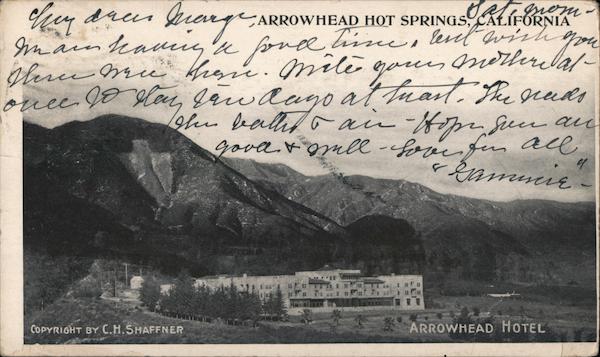 My dear Marge - Sat. morn -
ARROWHEAD HOT SPRINGS, CALIFORNIA
Am having a good time, but wish you
three were here. Write your mother at
once to stay ten days at least. She needs
the baths & air - Hope you are
good & well - Love for all
"Gammie" -
COPYRIGHT BY C.H. SHAFFNER
ARROWHEAD HOTEL